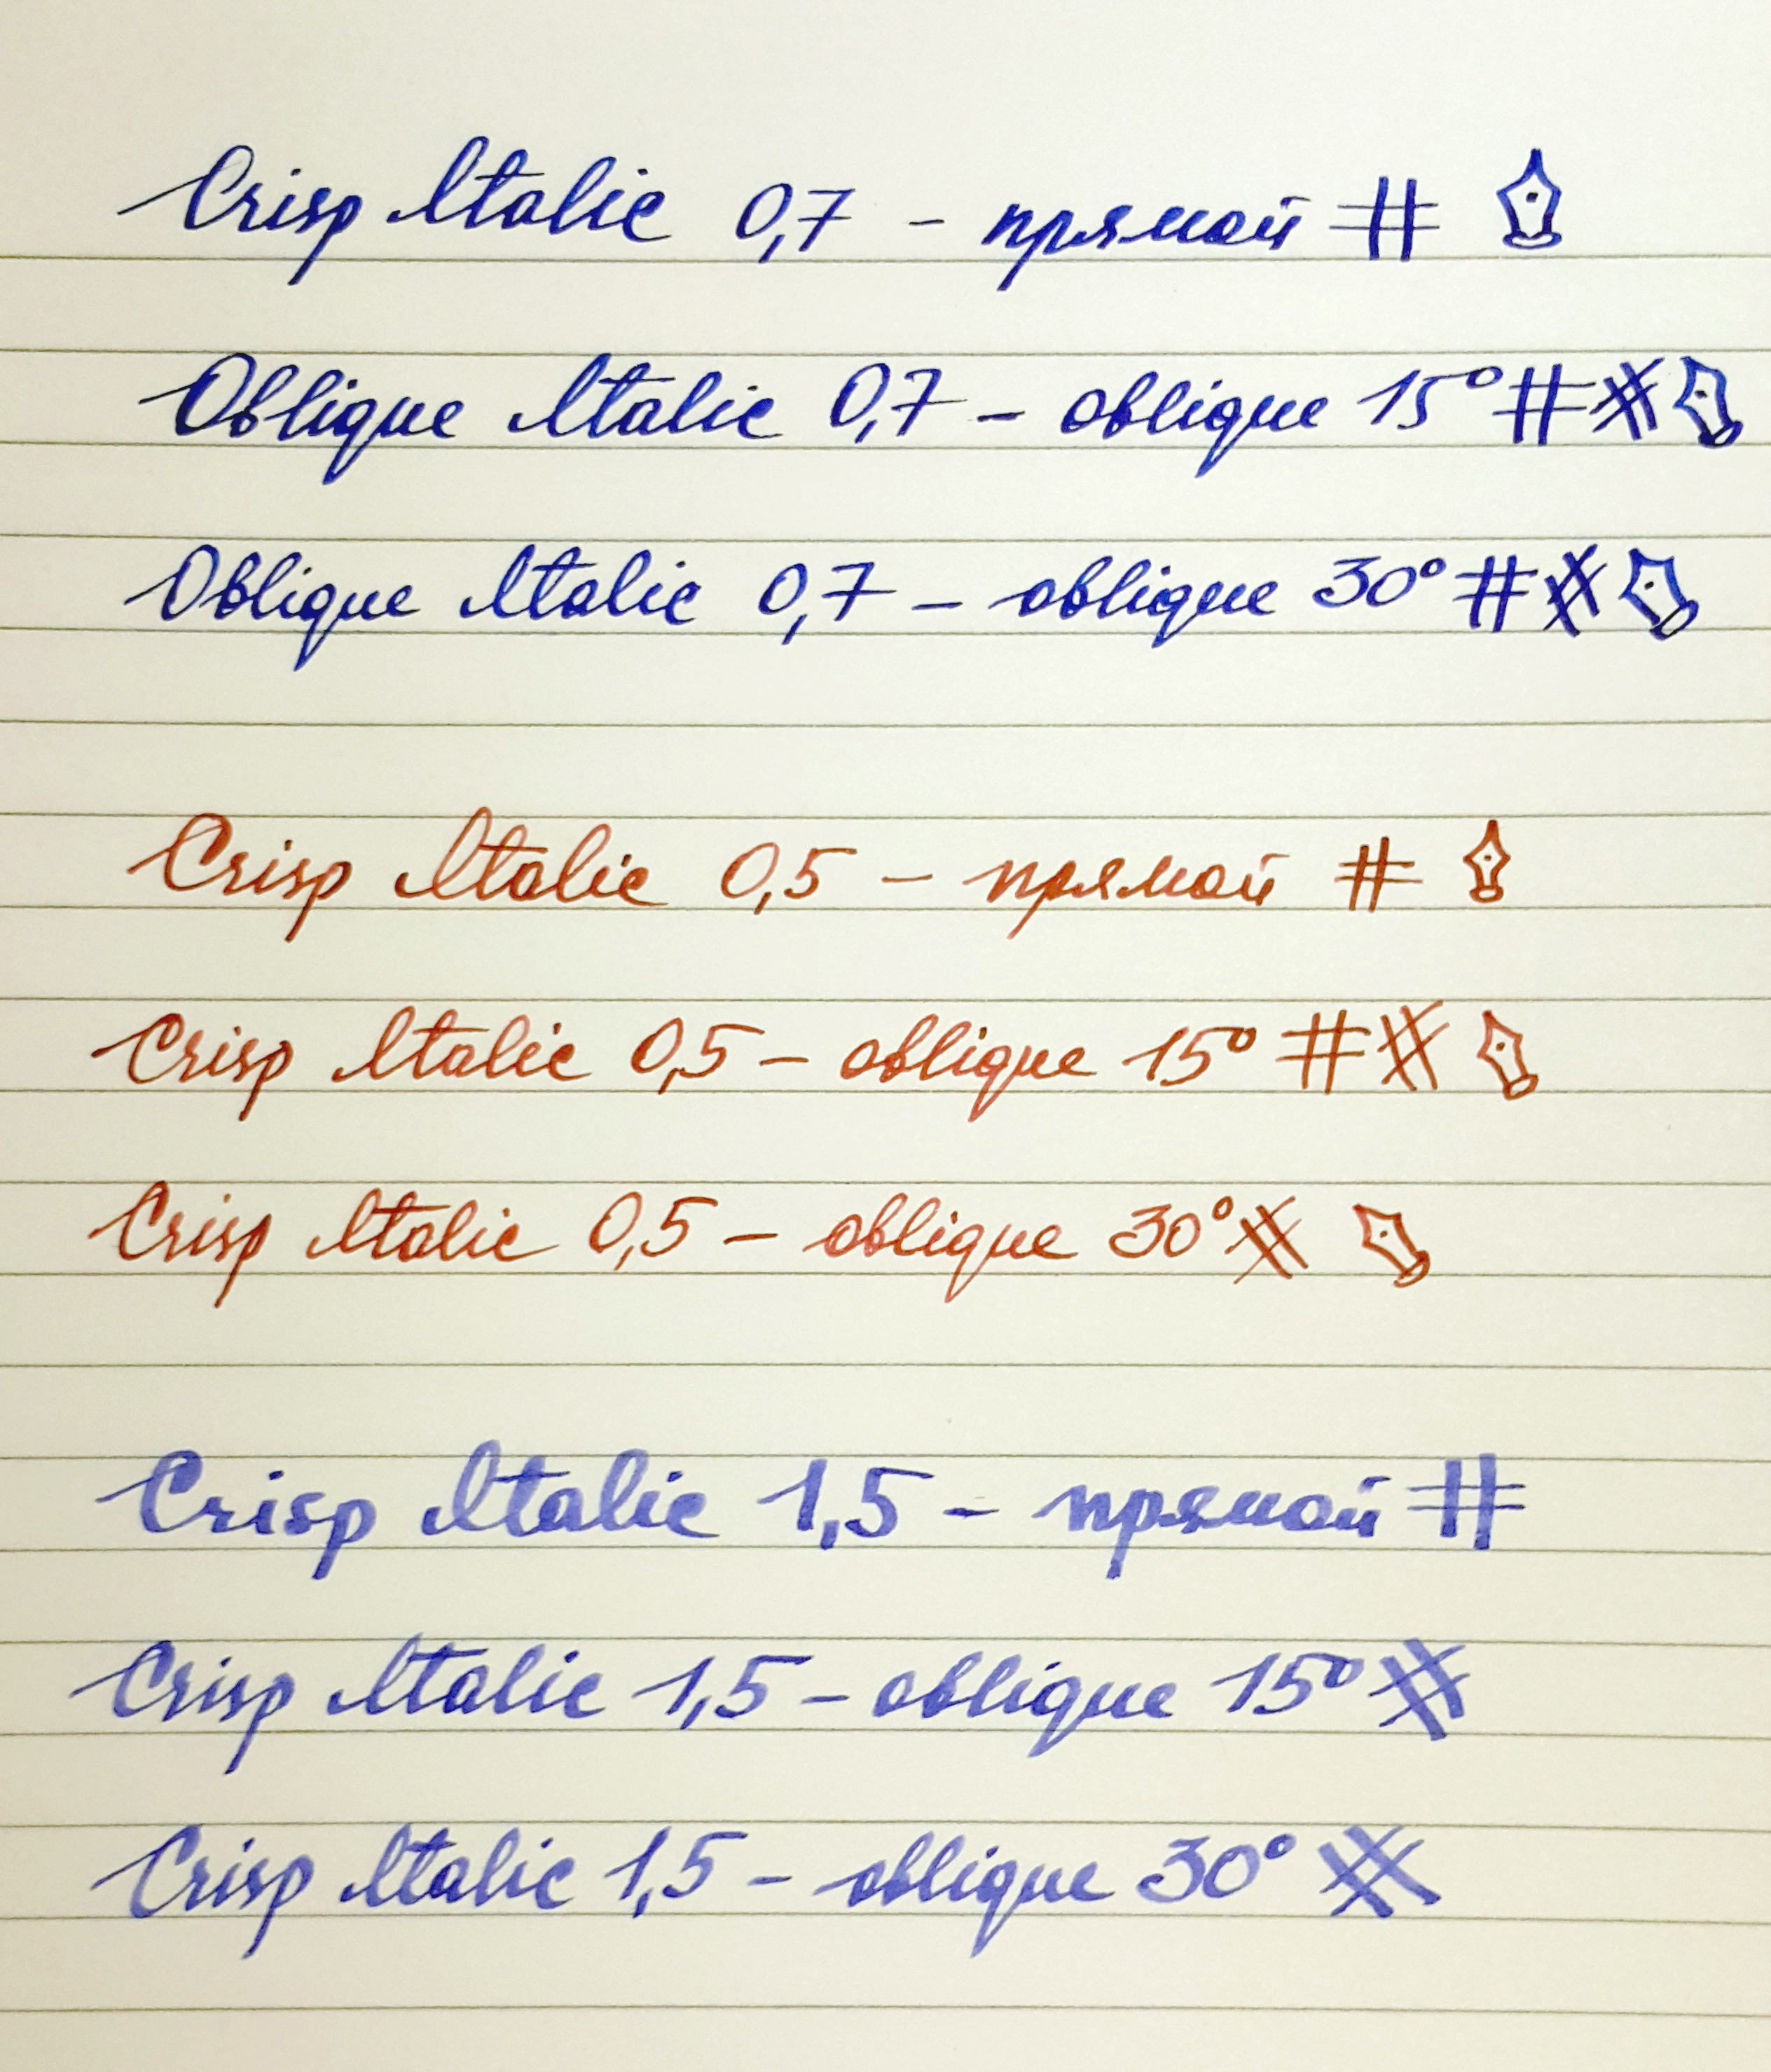 Crisp Italic 0,7 - прямой #
Oblique Italic 0,7 - oblique 15° # #
Oblique Italic 0,7 - oblique 30° # #
Crisp Italic 0,5 - прямой #
Crisp Italic 0,5 - oblique 15° # #
Crisp Italic 0,5 - oblique 30° #
Crisp Italic 1,5 - прямой #
Crisp Italic 1,5 - oblique 15° #
Crisp Italic 1,5 - oblique 30° #